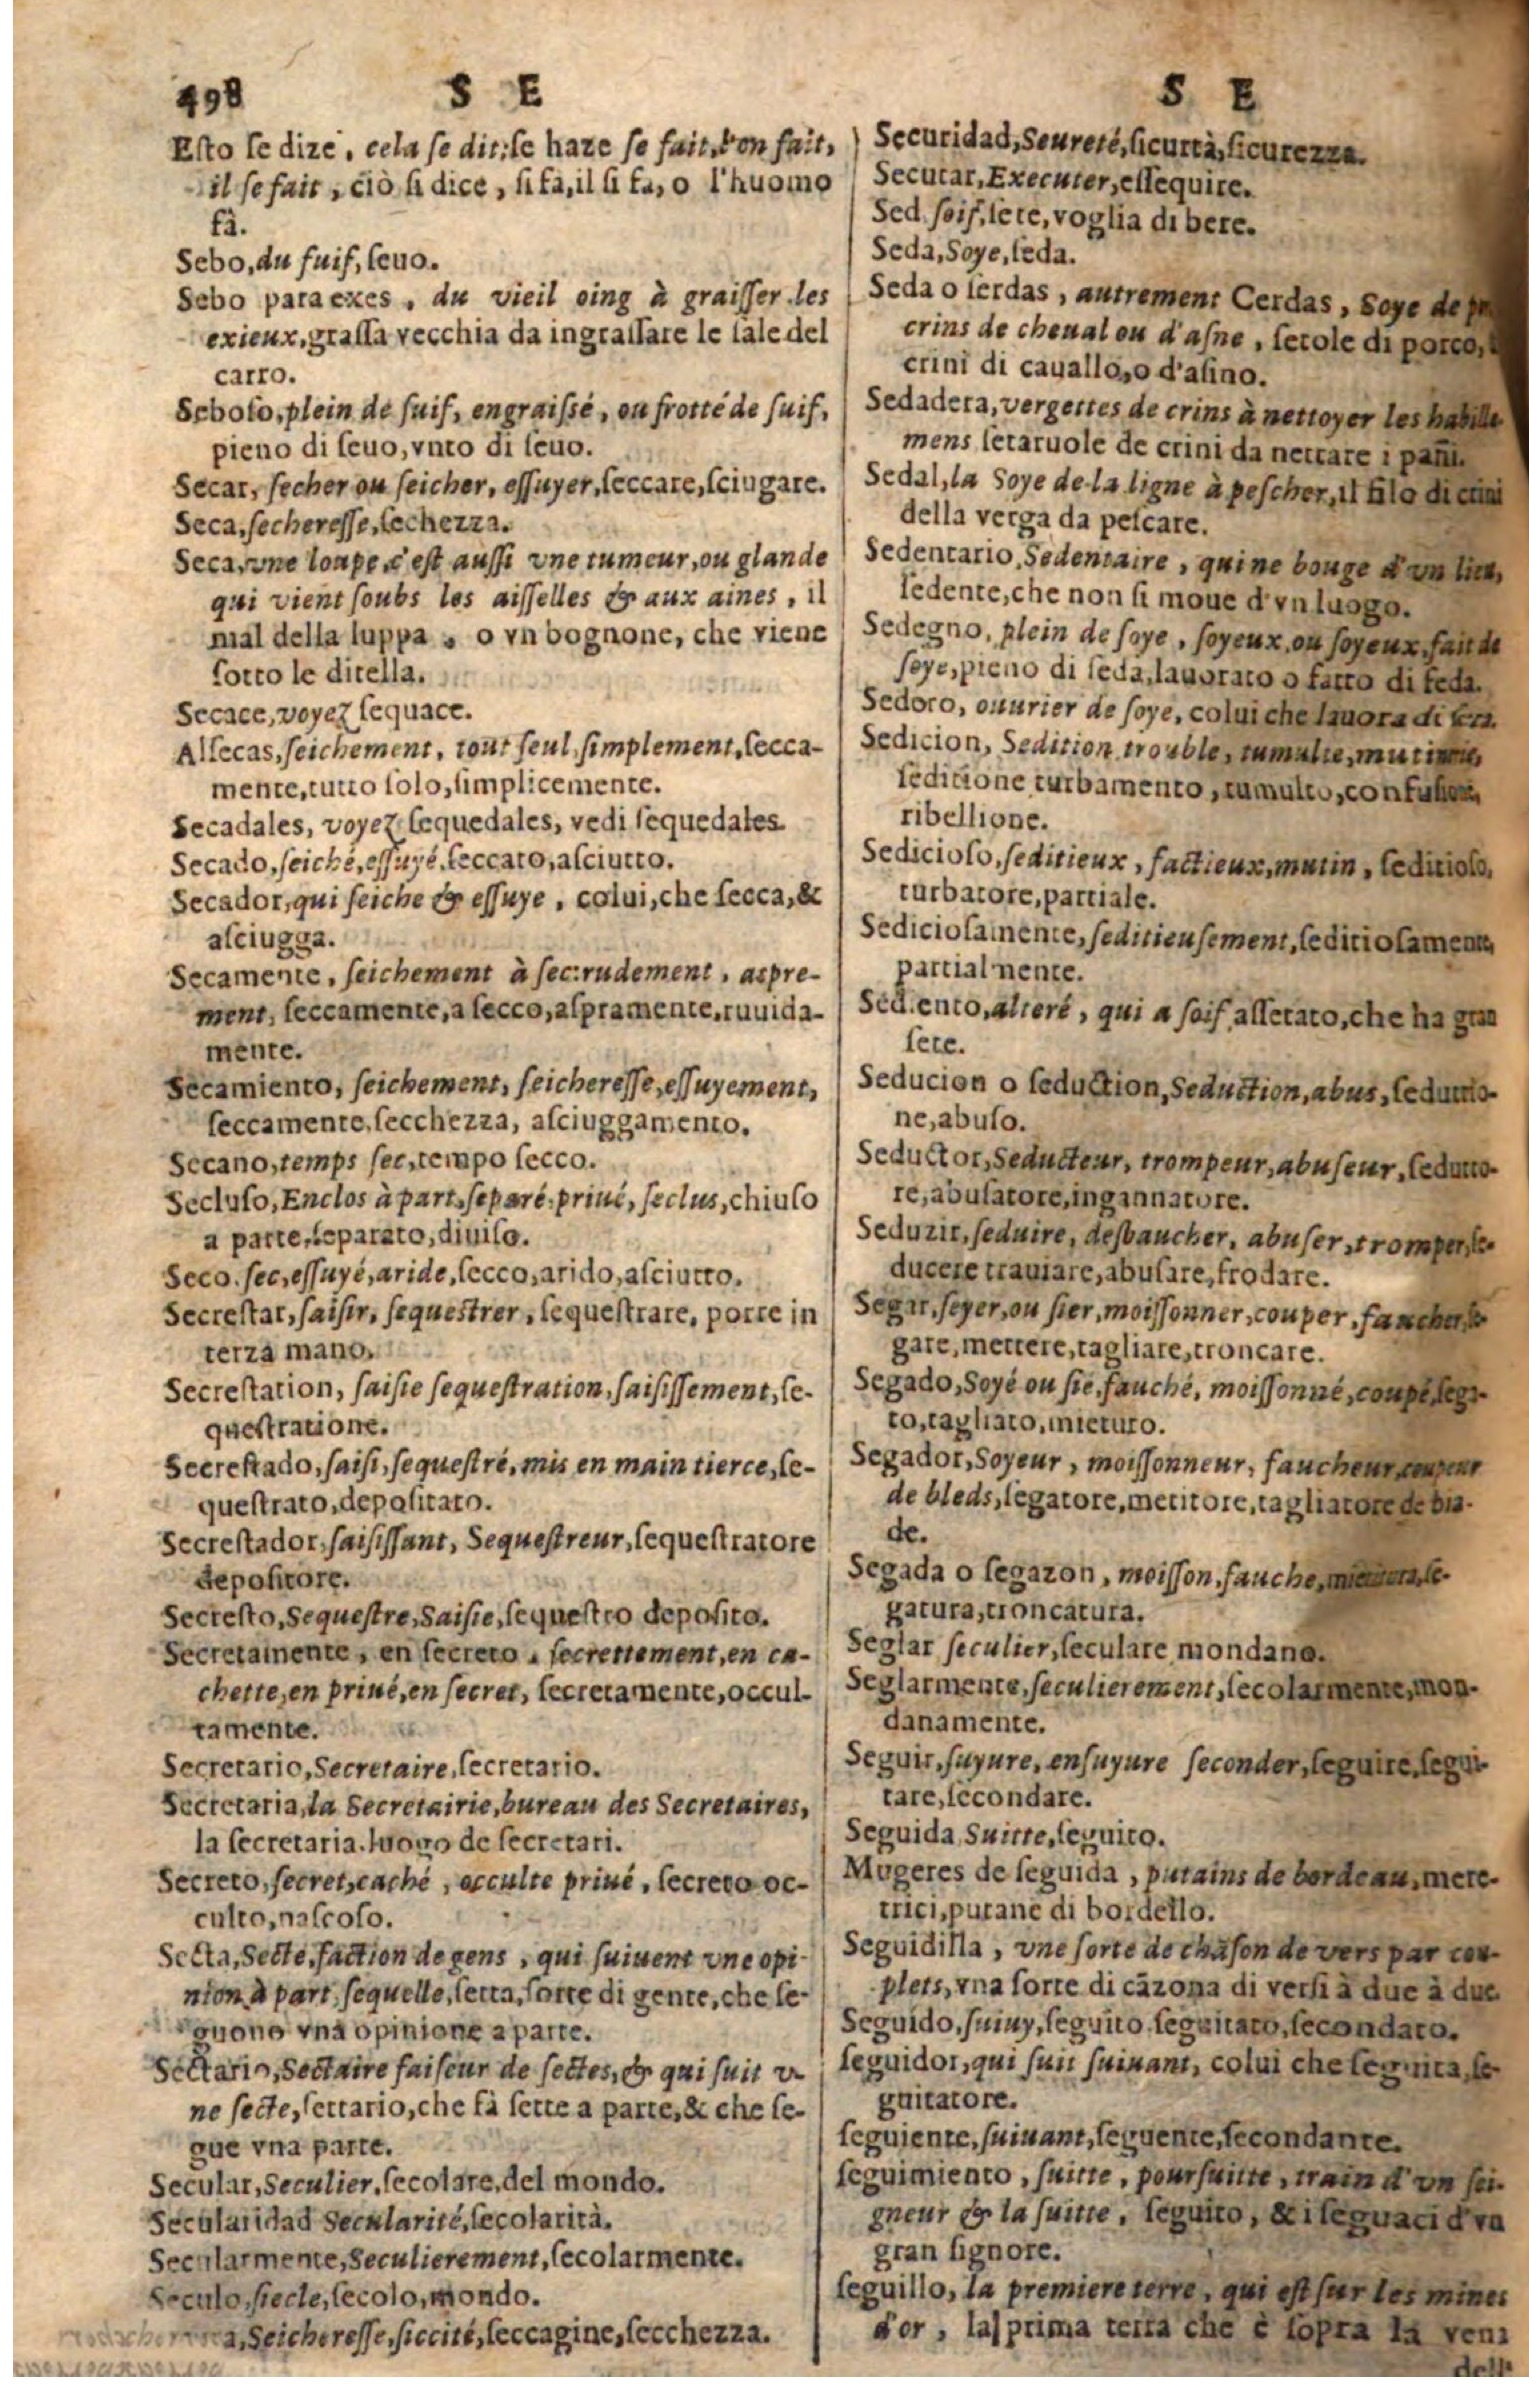 498 S E
Esto se dize, cela se dit: se haze se fait, l'on fait,
il se fait, ciò si dice, si fà, il si fa, o l'huomo
fà.
Sebo, du suif, seuo.
Sebo para exes, du vieil oing à graisser les
exieux, grassa vecchia da ingrassare le sale del
carro.
Seboso, plein de suif, engraissé, ou frotté de suif,
pieno di seuo, vnto di seuo.
Secar, secher ou seicher, essuyer, seccare, sciugare.
Seca, secheresse, sechezza.
Seca, vne loupe, c'est aussi vne tumeur, ou glande
qui vient soubs les aisselles & aux aines, il
mal della luppa, o vn bognone, che viene
sotto le ditella.
Secace, voyez sequace.
Alsecas, seichement, tout seul, simplement, secca-
mente, tutto solo, simplicemente.
Secadales, voyez sequedales, vedi sequedales.
Secado, seiché, essuyé, seccato, asciutto.
Secador, qui seiche & essuye, colui, che secca, &
asciugga.
Secamente, seichement à sec: rudement, aspre-
ment, seccamente, a secco, aspramente, ruuida-
mente.
Secamiento, seichement, seicheresse, essuyement,
seccamente, secchezza, asciuggamento.
Secano, temps sec, tempo secco.
Secluso, Enclos à part, separé, priué, seclus, chiuso
a parte, separato, diuiso.
Seco, sec, essuyé, aride, secco, arido, asciutto.
Secrestar, saisir, sequestrer, sequestrare, porre in
terza mano.
Secrestation, saisie sequestration, saisissement, se-
questratione.
Secrestado, saisi, sequestré, mis en main tierce, se-
questrato, depositato.
Secrestador, saisissant, Sequestreur, sequestratore
depositore.
Secresto, Sequestre, Saisie, sequestro deposito.
Secretamente, en secreto, secrettement, en ca-
chette, en priué, en secret, secretamente, occul-
tamente.
Secretario, Secretaire, secretario.
Secretaria, la Secretairie, bureau des Secretaires,
la secretaria, luogo de secretari.
Secreto, secret, caché, occulte priué, secreto oc-
culto, nascoso.
Secta, Secte, faction de gens, qui suiuent vne opi-
nion à part, sequelle, setta, sorte di gente, che se-
guono vna opinione a parte.
Sectario, Sectaire faiseur de sectes, & qui suit v-
ne secte, settario, che fà sette a parte, & che se-
gue vna parte.
Secular, Seculier, secolare, del mondo.
Secularidad Secularité, secolarità.
Secularmente, Seculierement, secolarmente.
Seculo, siecle, secolo, mondo.
Seicheresse, siccité, seccagine, secchezza.
S E
Securidad, Seureté, sicurtà, sicurezza.
Secutar, Executer, essequire.
Sed, soif, sete, voglia di bere.
Seda, Soye, seda.
Seda o serdas, autrement Cerdas, Soye de
crins de cheual ou d'asne, setole di porco,
crini di cauallo, o d'asino.
Sedadera, vergettes de crins à nettoyer les habille-
mens setaruole de crini da nettare i pañi.
Sedal, la Soye de la ligne à pescher, il filo di crini
della verga da pescare.
Sedentario, Sedentaire, qui ne bouge d'vn lieu,
sedente, che non si moue d'vn luogo.
Sedegno, plein de soye, soyeux, ou soyeux, fait de
soye, pieno di seda, lauorato o fatto di seda.
Sedoro, ouurier de soye, colui che lauora di seta.
Sedicion, Sedition, trouble, tumulte, mutinerie,
seditione turbamento, tumulto, confusione,
ribellione.
Sedicioso, seditieux, factieux, mutin, seditioso,
turbatore, partiale.
Sediciosamente, seditieusement, seditiosamente,
partialmente.
Sediento, alteré, qui a soif, assetato, che ha gran
sete.
Seducion o seduction, Seduction, abus, seduttio-
ne, abuso.
Seductor, Seducteur, trompeur, abuseur, sedutto-
re, abusatore, ingannatore.
Seduzir, seduire, desbaucher, abuser, tromper, se-
ducere trauiare, abusare, frodare.
Segar, seyer, ou sier, moissonner, couper, faucher, se-
gare, mettere, tagliare, troncare.
Segado, Soyé ou sié, fauché, moissonné, coupé, sega-
to, tagliato, mieturo.
Segador, Soyeur, moissonneur, faucheur, coupeur
de bleds, segatore, metitore, tagliatore de bia-
de.
Segada o segazon, moisson, fauche, mietitura, se-
gatura, troncatura.
Seglar seculier, seculare mondano.
Seglarmente, seculierement, secolarmente, mon-
danamente.
Seguir, suyure, ensuyure seconder, seguire, segui-
tare, secondare.
Seguida Suitte, seguito.
Mugeres de seguida, putains de bordeau, mere-
trici, putane di bordello.
Seguidilla, vne sorte de chāson de vers par cou-
plets, vna sorte di cāzona di versi à due à due.
Seguido, suiuy, seguito seguitato, secondato.
seguidor, qui suit suiuant, colui che seguita, se-
guitatore.
seguiente, suiuant, seguente, secondante.
seguimiento, suitte, poursuitte, train d'vn sei-
gneur & la suitte, seguito, & i seguaci d'vn
gran signore.
seguillo, la premiere terre, qui est sur les mines
d'or, la prima terra che è sopra la vena
dell'